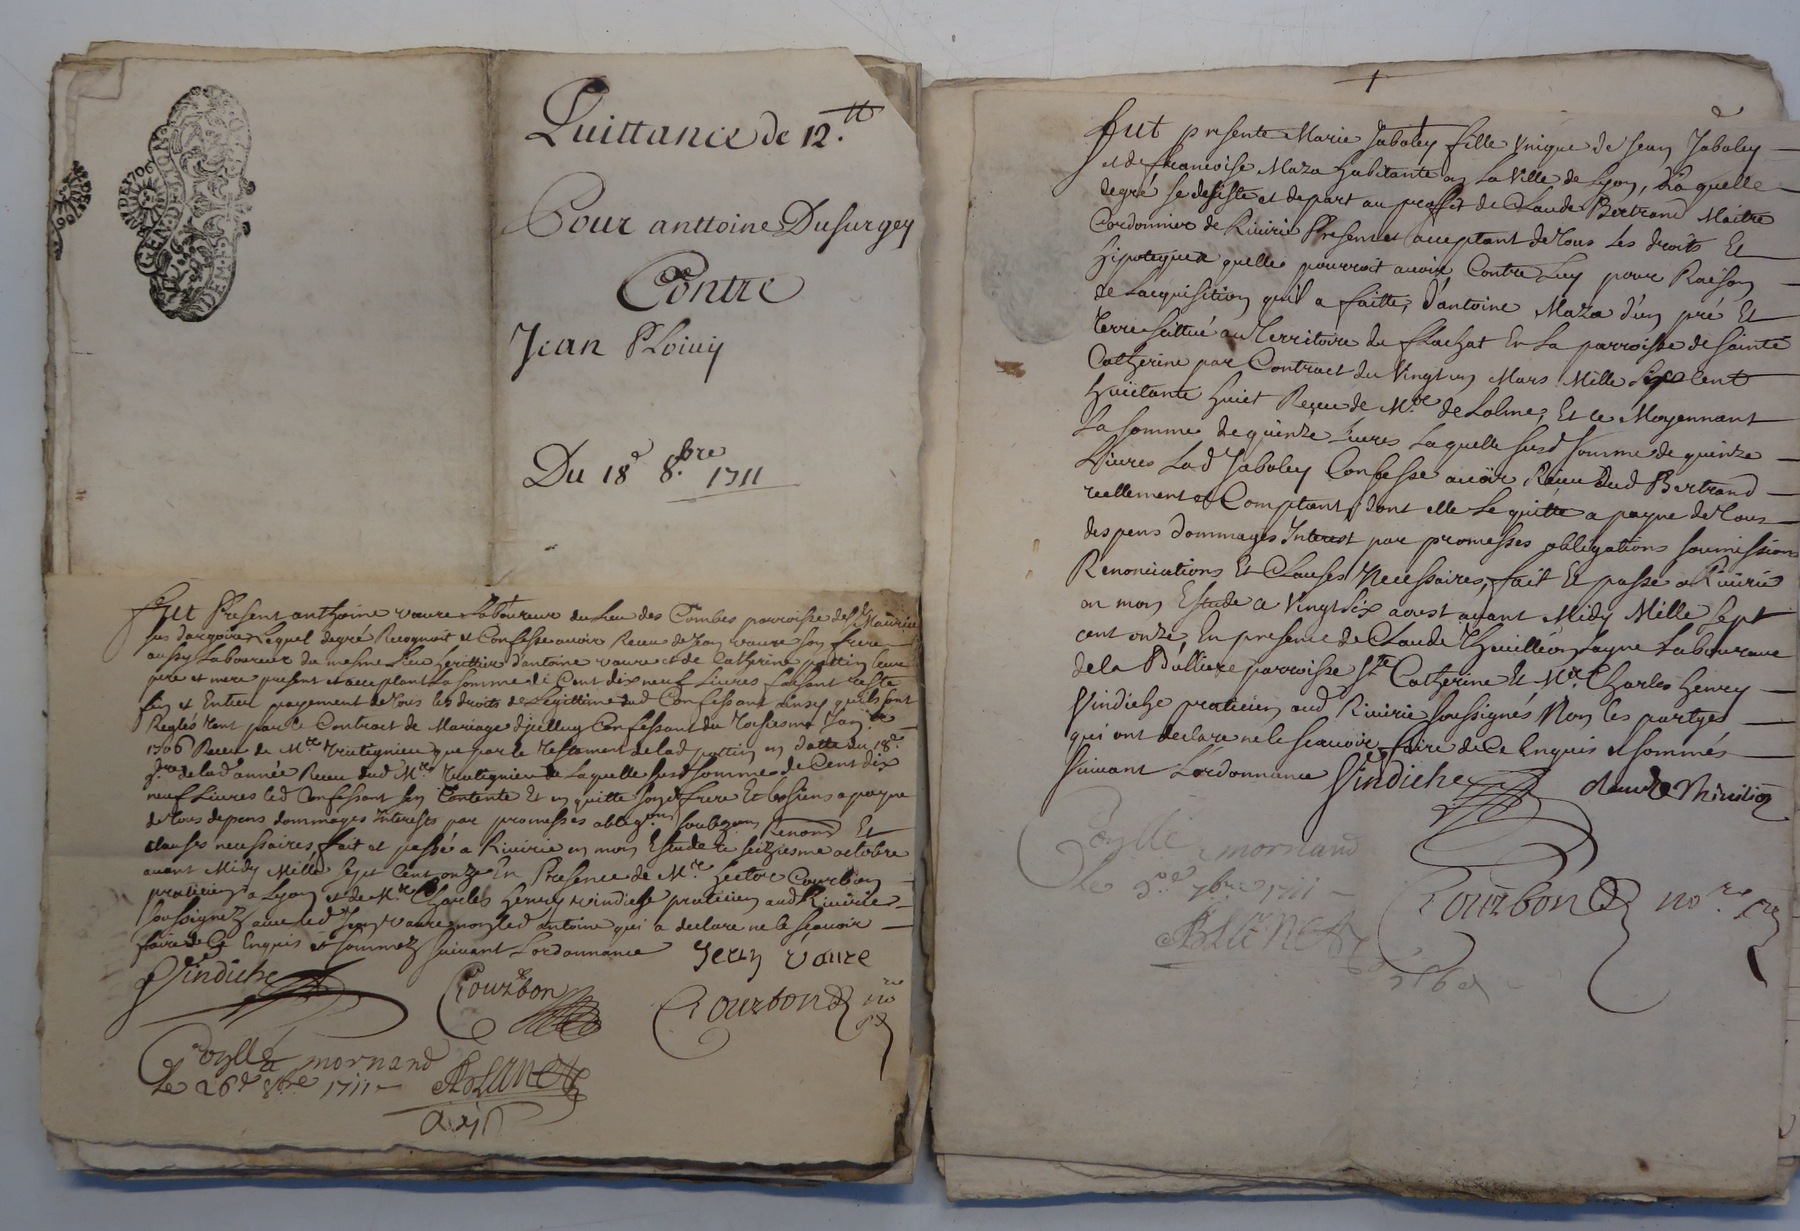 Quittance de 12.tt
Pour anttoine Dusurgey
Contre
Jean Ploivy
Du 18e 8.bre 1711
GEN DE LYON
Fut Present anthoine vaure Laboureur du Lieu des Combes parroisse de St Maurice
sur dargoire Lequel degré Recognoit et Confesse avoir Receu de Jean vaure son frere
aussy Laboureur du mesme Lieu heritier d'antoine vaure et de Catherine pottin leurs
pere et mere present et acceptant La somme de Cent dix neuf Livres faisant reste
fin et Entier payement de tous les droits de Legittime dud Confessant Ainsy quils sont
Reglés tant par le Contract de Mariage dicelluy Confessant du
1706 Receu de M.re que par le Testament de lad pottin en datte du 18.e
de lad année Receu dud M.re de Laquelle susd somme de Cent dix
neuf Livres led Confessant sen Contente Et en quitte sond frere Et les siens a payne
de tous depens dommages Interests par promesses obleg.ons soubz.ons Renon.ons Et
clauses necessaires, fait et passé a Riverie en mon Estude le seiziesme octobre
avant Midy Mille Sept Cent onze En Presence de M.re hector Courbon
praticien a Lyon et de M.re Charles Henry vindiche praticien aud Riverie
soussignez avec led Jean vaure non led antoine qui a declare ne le scavoir
faire de Ce Enquis et sommez suivant Lordonnance Jean vaure
Vindiche Courbon Courbon no.re
Coyllé a mornand
Le 26e 8bre 1711
Blanc
Fut presente Marie Jaboley fille Unique de Jean Jaboley
et de francoise Maza habitante en La Ville de Lyon, Laquelle
degré se desiste et depart au proffit de Claude Bertrand Maitre
Cordonnier de Riverie Present et acceptant de tous Les droits Et
hipoteques quelle pourroit avoir Contre Luy pour Raison
de Lacquisition qu'il a faitte, d'antoine Maza d'un pré Et
terre scittué au Territoire du flachat En La parroisse de Sainte
Catherine par Contract du Vingt un Mars Mille Cent
huittante huict Receu de M.re de Lolme, Et ce Moyennant
La Somme de quinze Livres Laquelle susd Somme de quinze
Livres Lad Jaboley Confesse avoir Receu dud Bertrand
reellement et Comptant, dont elle Le quitte a payne de tous
despens dommages Interest par promesses obligations soumissions
Renonciations Et Clauses Necessaires, fait Et passé a Riverie
en mon Estude a Vingt six aoust avant Midy Mille Sept
cent onze En presence de Claude Thevilleon ayne Laboureur
de la Bulliere parroisse Ste Catherine Et M.re Charles Henry
Vindiche praticien aud Riverie Soussignés Non les partyes
qui ont declare ne le Scavoir faire de Ce Enquis et Sommés
Suivant L'ordonnance Vindiche Claude
Coyllé a mornand
Le 7bre 1711
Blanc
Courbon no.re